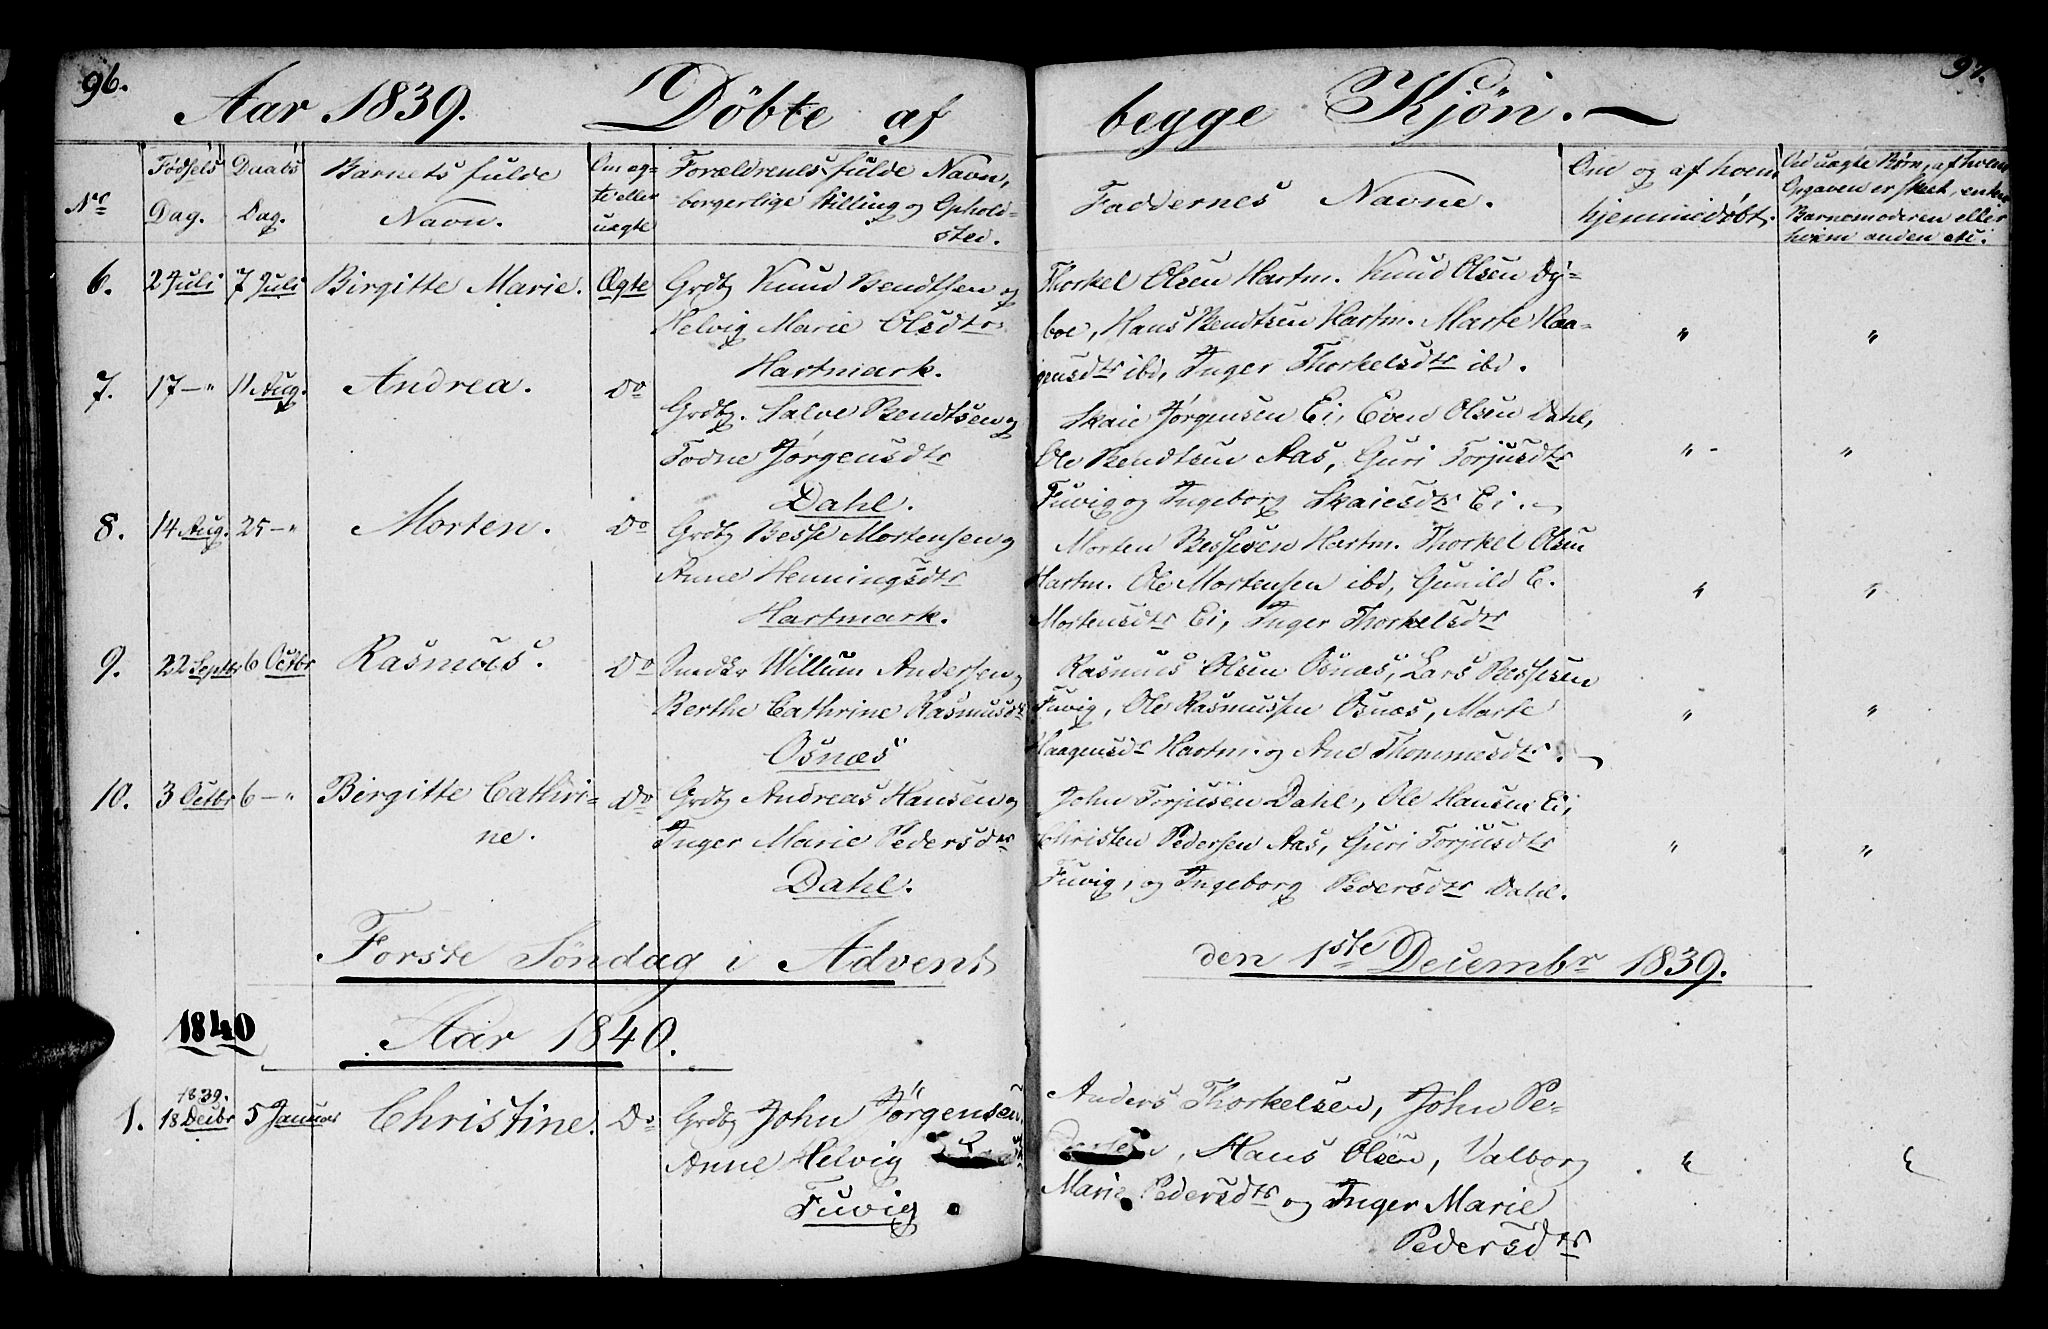 96.
Aar 1839. Döbte af
Nr
Födsels
Dag.
Daabs
Dag.
Barnets fulde
Navn.
Om æg-
te eller
uægte
Forældrenes fulde Navn,
borgerlige Stilling og Ophold-
sted.
6. 2 Juli 7 Juli Birgitte Marie. Ægte Grdbg Knud Bendtsen og
Helvig Marie Olsdtr
Hartmark.
7. 17 – " 11 Aug. Andrea. Do
Grdbg. Salve Bendtsen og
Todne Jørgensdtr
Dahl.
8. 14 Aug. 25 – " Morten. Do Grdbg Besse Mortensen og
Anne Henningsdtr
Hartmark.
9. 22 Septbr 6 Octbr Rasmus. Do Willum Andersen og
Berthe Cathrine Rasmusdtr
Osnæs
10. 3 Octbr 6 – " Birgitte Cathri- Do Grdbg Andreas Hansen og
ne. Inger Marie Pedersdtr
Dahl.
Forste Söndag i Advent
1840
Aar 1840.
1839.
1. 18 Decbr 5 Januar Christine. Do Grdbg John Jørgensen
Anne Helvig
Fuvig
97.
begge Kjön.
Faddernes Navne.
Om og af hvem
hjemmedöbt.
Ved uægte Børn, af hvem
Opgaven er skeet, enten
Barnemoderen eller
hvem anden etc.
Thorkel Olsen Hartm. Knud Olsen Dy-
boe, Hans Bendtsen Hartm. Marte Haa-
gensdtr ibd, Inger Thorkelsdtr ibd. " "
Skaie Jørgensen Ei, Even Olsen Dahl,
Ole Bendtsen Aas, Guri Torjusdtr " "
Fuvig og Ingeborg Skaiesdtr Ei.
Morten Bessesen Hartm. Thorkel Olsen
Hartm. Ole Mortensen ibd, Gunild E. " "
Mortensdtr Ei, Inger Thorkelsdtr
Rasmus Olsen Osnæs, Lars Bessesen
Fuvig, Ole Rasmussen Osnæs, Marte " "
Haagensdr Hartm. og Ane Thommesdtr.
John Torjusen Dahl, Ole Hansen Ei,
Christen Pedersen Aas, Guri Torjusdtr " "
Fuvig, og Ingeborg Pedersdtr Dahl.
den 1ste Decembr 1839.
Anders Thorkelsen, John Pe-
dersen, Hans Olsen, Valborg " "
Marie Pedersdtr og Inger Marie
Pedersdtr